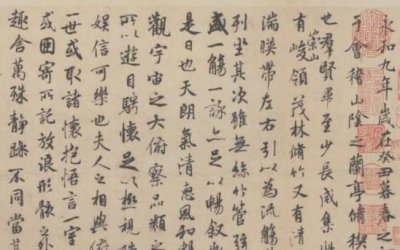 永和九年歲在癸丑暮春之
于會稽山陰之蘭亭脩稧
也羣賢畢至少長咸集此
有崇山峻領茂林脩竹又有清
湍暎帶左右引以為流觴
列坐其次雖無絲竹管弦
盛一觴一詠亦足以暢叙
是日也天朗氣清惠風和暢
觀宇宙之大俯察品類之
所以遊目騁懷足以極視
娛信可樂也夫人之相與俯
一世或取諸懷抱悟言一室
或因寄所託放浪形骸之外
趣舍萬殊靜躁不同當其